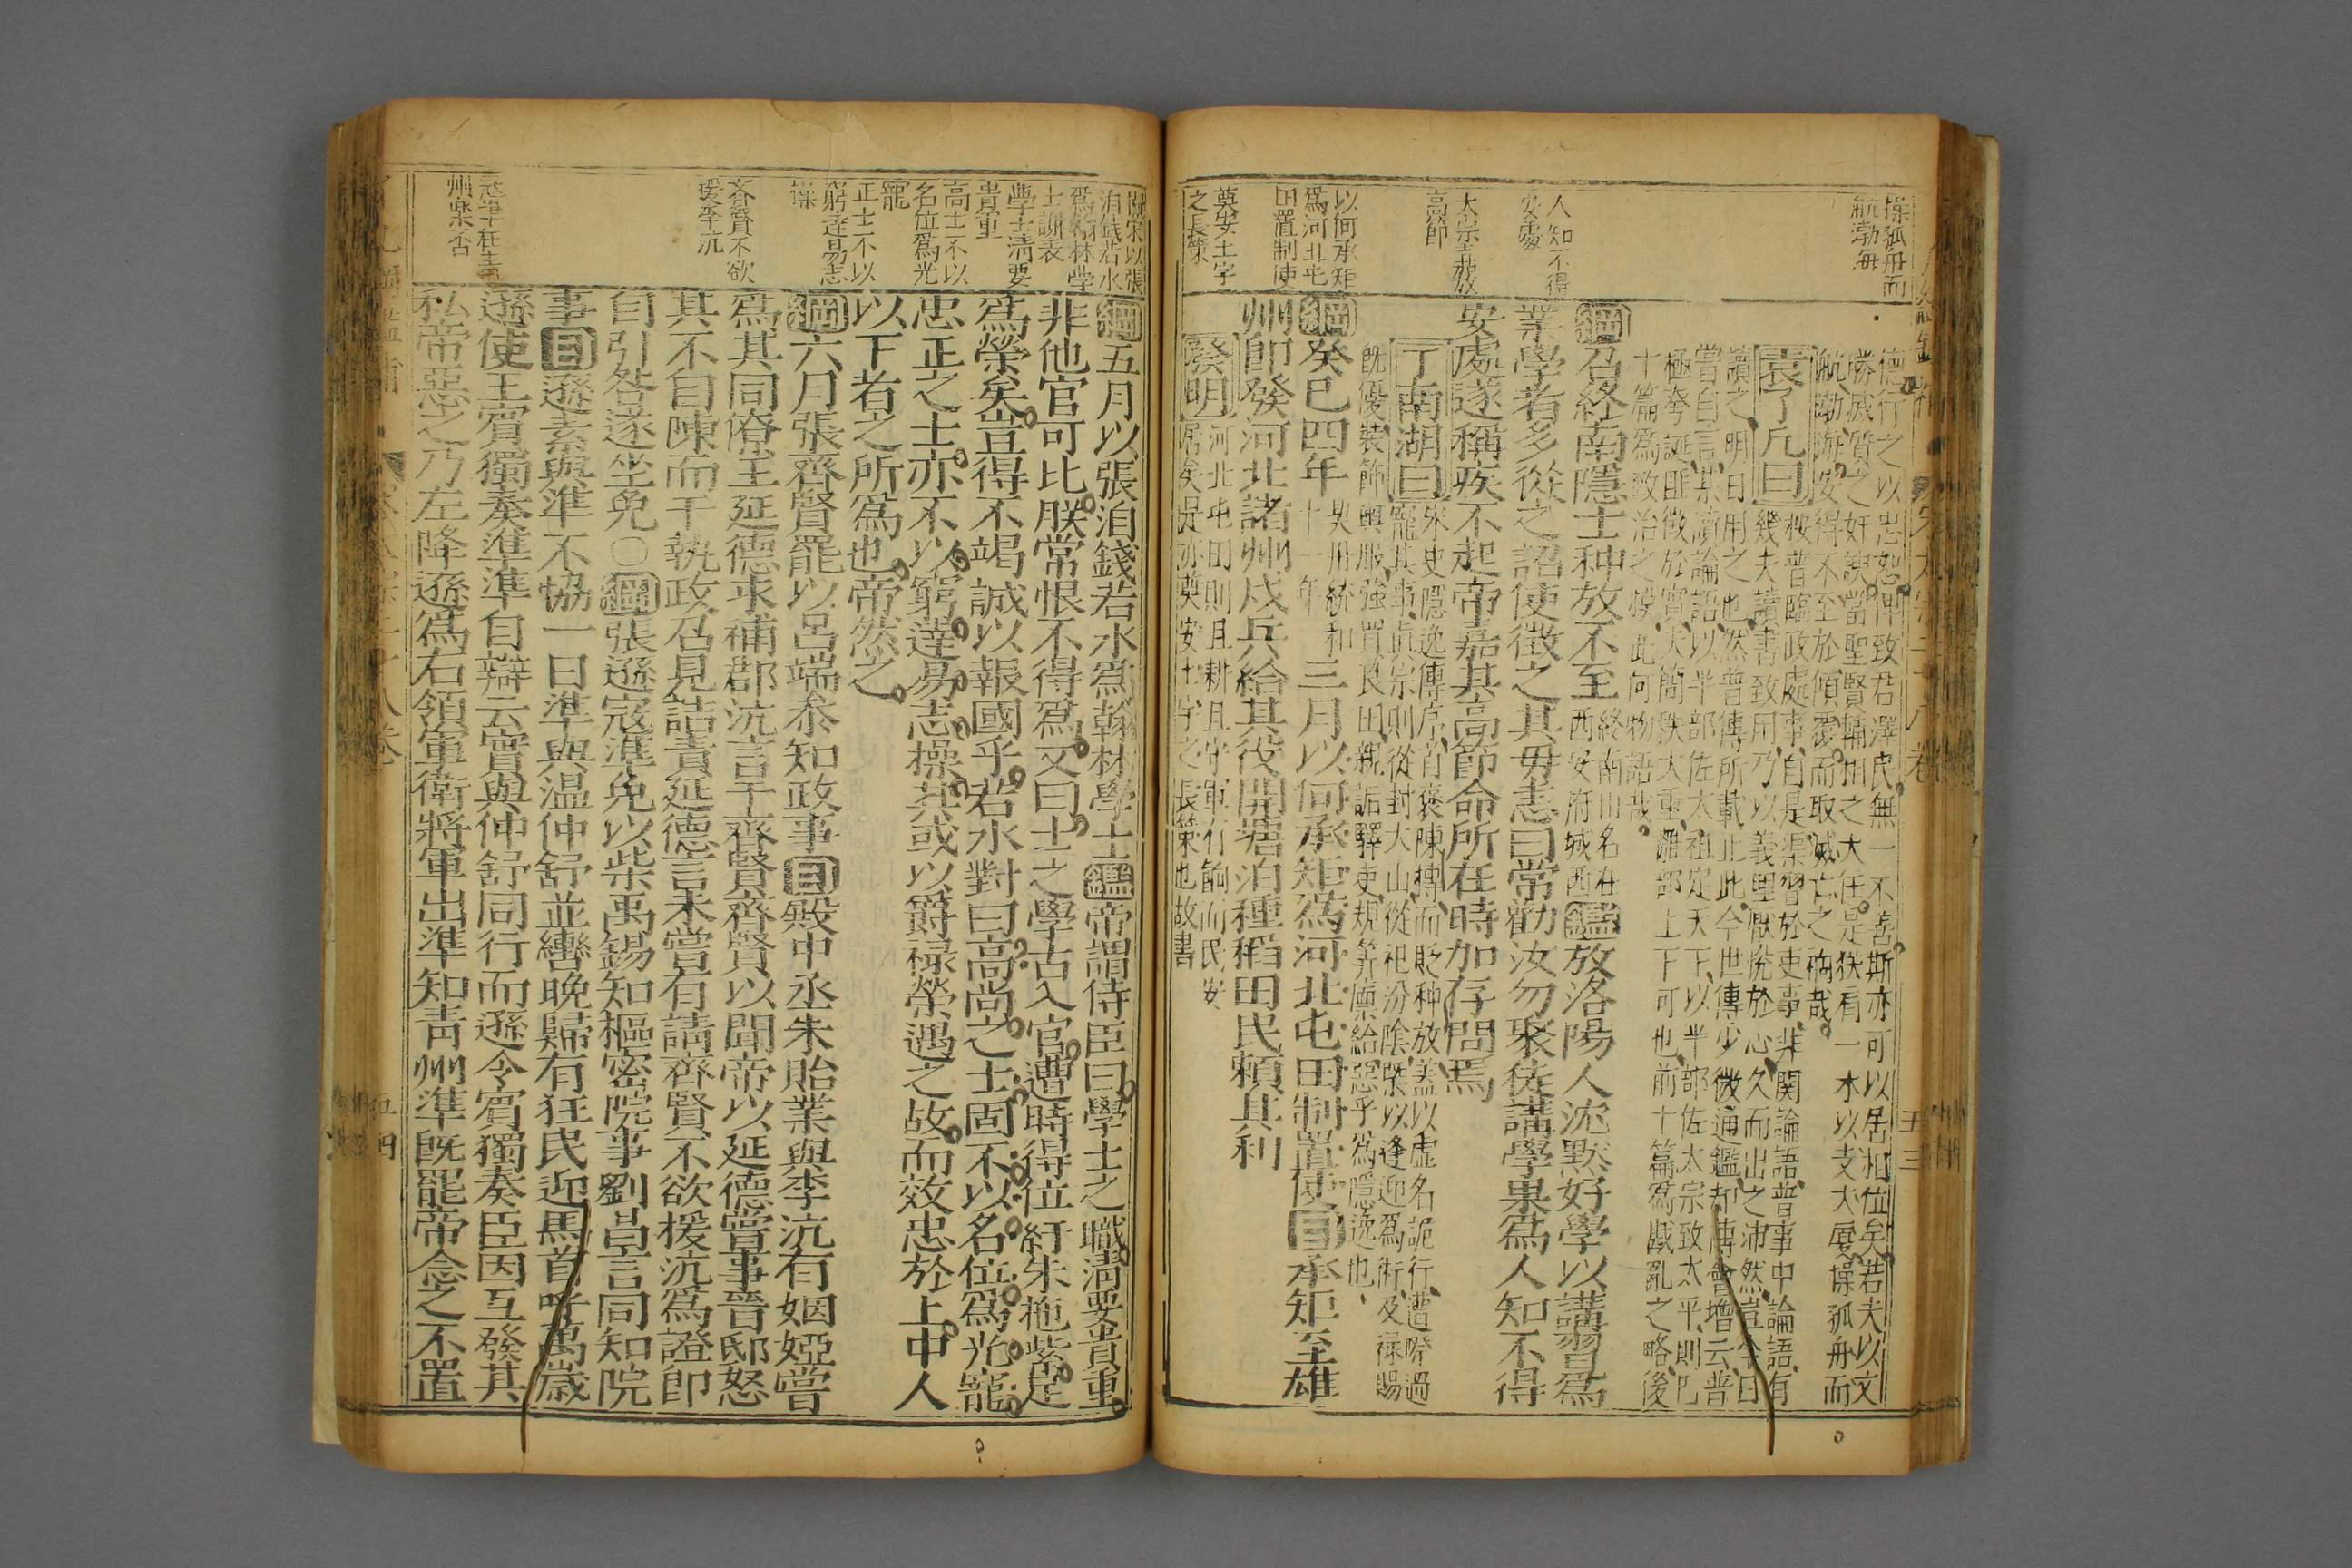 操孤舟而
航渤海
人知不得
安處
太宗嘉放
高節
以何承矩
爲河北屯
田置制使
奠安土宇
之長策
德行之以忠恕俾致君澤民無一不善斯亦可以居相位矣若夫以文
勝滅質之奸諛當聖賢輔相之大任是猶看一木以支大廈操孤舟而
航渤海安得不至於傾覆而取滅亡之禍哉
袁了凡曰
按普臨政處事自是渠習於吏事非関論語普事中論語有
幾夫讀書致用乃以義理厭悅於心久而出之沛然豈今日
讀之明日用之也然普傳所載止此今世傳少微通鑑却傳會增云普
嘗自言某讀論語以半部佐太祖定天下以半部佐太宗致太平則已
極夸誕匪徵於實夫簡帙大重離部上下可也前十篇爲戡亂之略後
十篇爲致治之模此何物語哉
綱召終南隱士种放不至
終南山名在
西安府城西
鑑放洛陽人沈默好學以講習爲
業學者多從之詔使徵之其毋恚曰常勸汝勿聚徒講學果爲人知不得
安處遂稱疾不起帝嘉其高節命所在時加存問焉
丁南湖曰
宋史隱逸傳序首褒陳摶而貶种放蓋以虛名詭行遭際過
寵其事真宗則從封大山從祀汾陰槩以逢迎爲術及祿賜
旣優裝飾輿服強買良田親詬驛吏規筭廩給惡乎爲隱逸也
綱癸巳四年
契丹統和
十一年
三月以何承矩爲河北屯田制置使目承矩至雄
州卽發河北諸州戍兵給其役開塘泊種稻田民賴其利
發明
河北屯田則且耕且守軍有餉而民安
居矣是亦奠安土宇之長策也故書
宋太宗二十八卷
五三
陞宋以張
洎錢若水
爲翰林學
士謝表
學士清要
貴重
高士不以
名位爲光
寵
正士不以
窮達易志
操
齊賢不欲
援李沆
遜準在青
州樂否
綱五月以張洎錢若水爲翰林學士鑑帝謂侍臣曰學士之職清要貴重
非他官可比朕常恨不得爲又曰士之學古入官遭時得位紆朱拖紫足
爲榮矣豈得不竭誠以報國乎若水對曰高尚之士固不以名位爲光寵
忠正之士亦不以窮達易志操其或以爵祿榮遇之故而效忠於上中人
以下者之所爲也帝然之
綱六月張齊賢罷以呂端叅知政事目殿中丞朱貽業與李沆有姻婭嘗
爲其同僚王延德求補郡沆言于齊賢齊賢以聞帝以延德嘗事晉邸怒
其不自陳而干執政召見詰責延德言未嘗有請齊賢不欲援沆爲證卽
自引咎遂坐免〇綱張遜寇準免以柴禹錫知樞密院事劉昌言同知院
事目遜素與準不協一日準與温仲舒並轡晚歸有狂民迎馬首呼萬歲
遜使王賓獨奏準準自辯云實與仲舒同行而遜令賓獨奏臣因互發其
私帝惡之乃左降遜爲右領軍衛將軍出準知青州準旣罷帝念之不置
五四